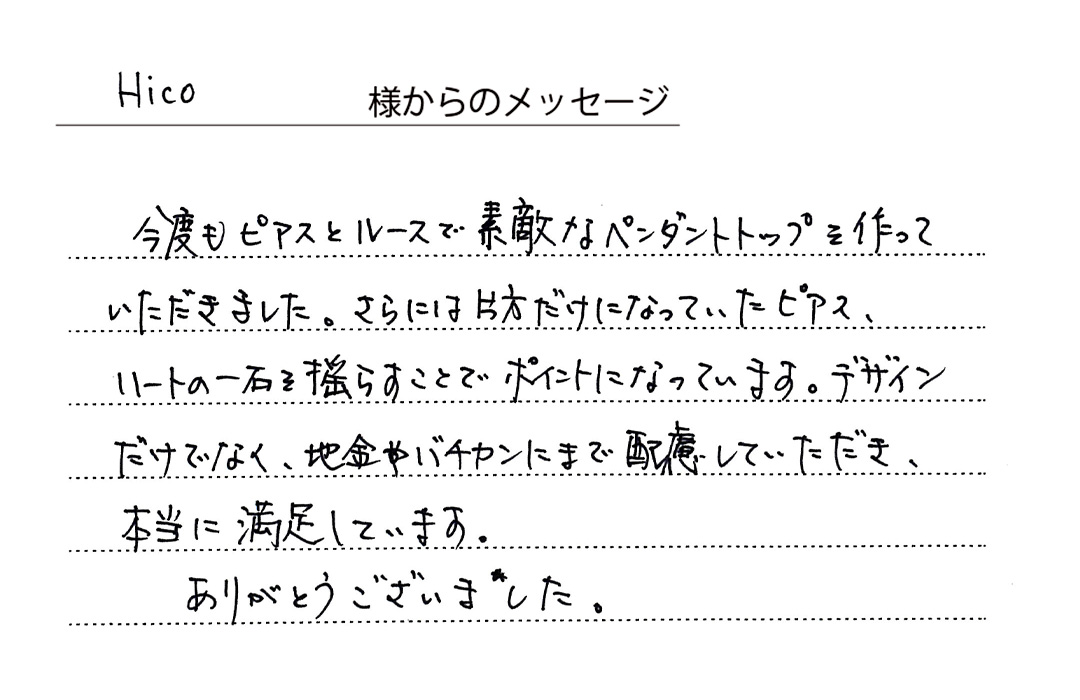 Hico 様からのメッセージ
今度もピアスとルースで素敵なペンダントトップを作って
いただきました。さらには片方だけになっていたピアス、
ハートの一石を揺らすことでポイントになっています。デザイン
だけでなく、地金やバチカンにまで配慮していただき、
本当に満足しています。
ありがとうございました。